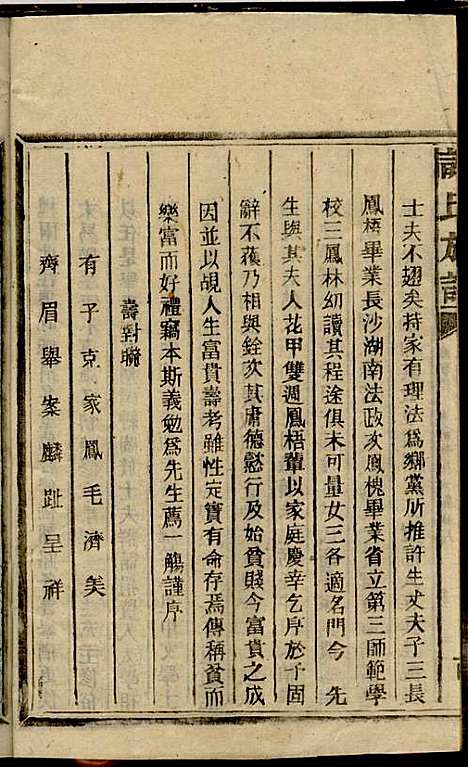 許氏族譜
士夫不翅矣持家有理法爲鄉黨所推許生丈夫子三長
鳳梧畢業長沙湖南法政次鳳槐畢業省立第三師範學
校三鳳林幼讀其程途俱未可量女三各適名門今 先
生與其夫人花甲雙週鳳梧輩以家庭慶幸乞序於予固
辭不獲乃相與銓次其庸德懿行及始貧賤今富貴之成
因並以覘人生富貴壽考雖性定寶有命存焉傳稱貧而
樂富而好禮竊本斯義勉爲先生薦一觴謹序
壽對聯
有子克家鳳毛濟美
齊眉舉案麟趾呈祥